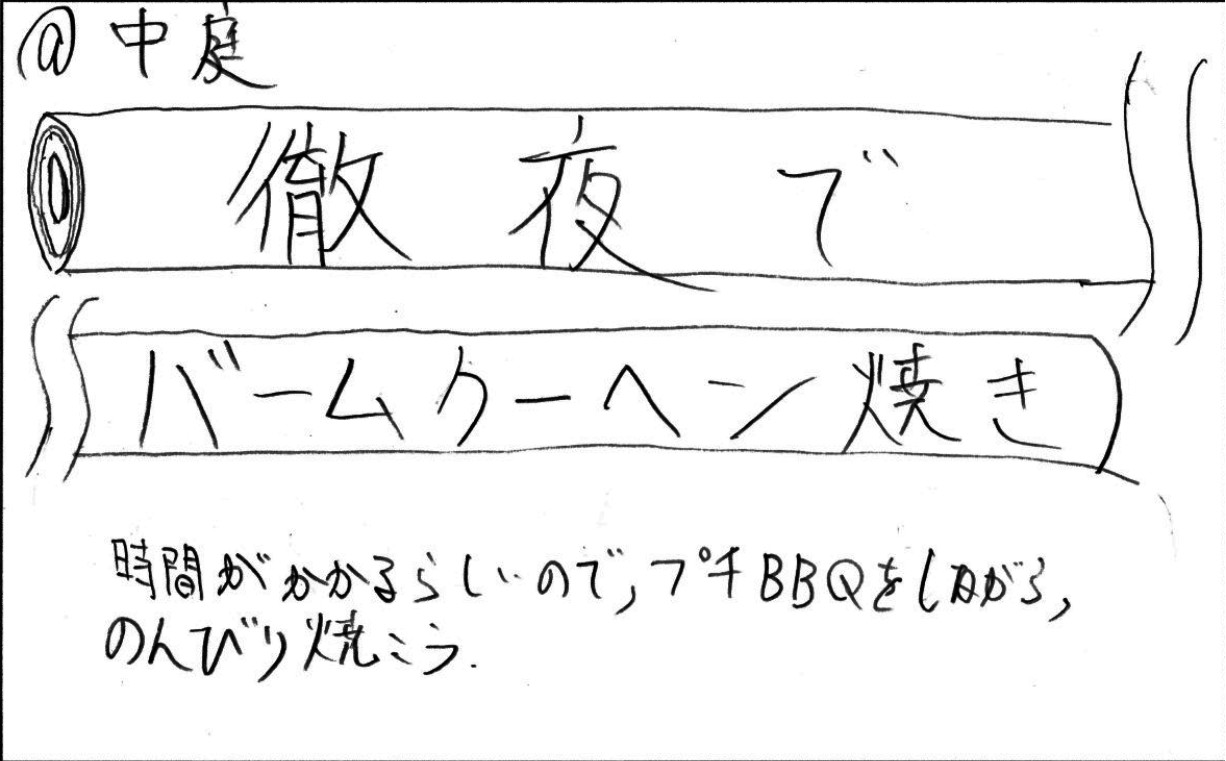 @ 中庭
徹夜で
バームクーヘン焼き
時間がかかるらしいので, プチBBQをしながら,
のんびり焼こう.